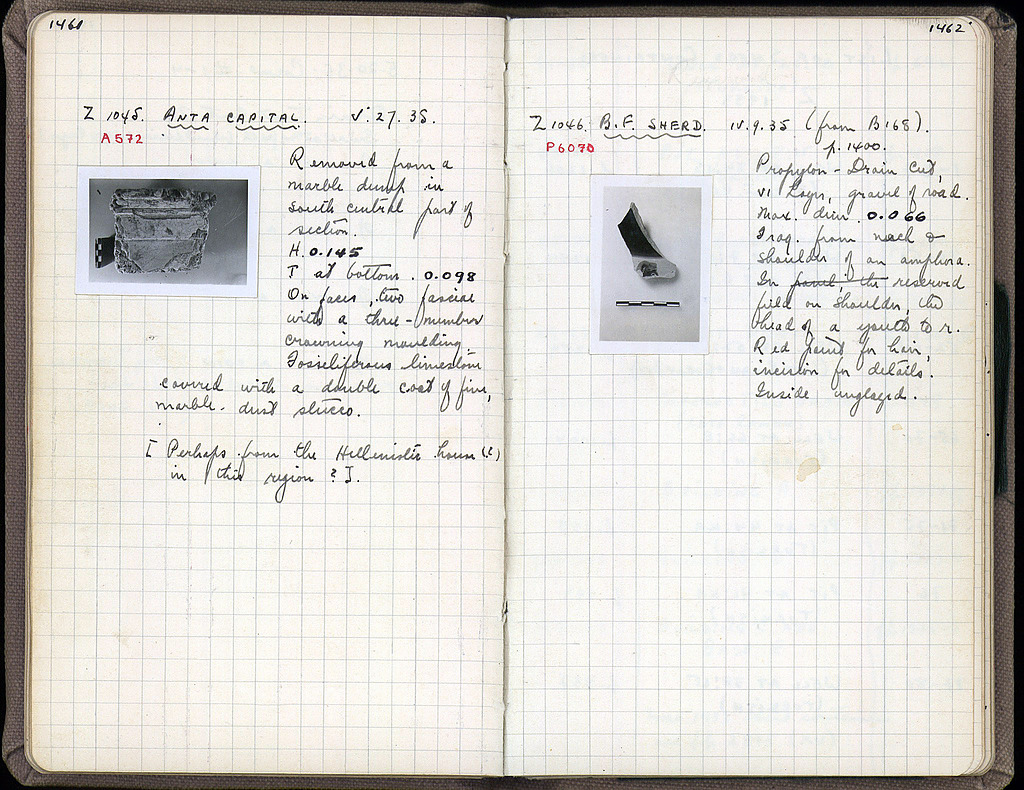 1461
Z 1045. ANTA CAPITAL. V. 27. 35.
A 572
Removed from a
marble dump in
south central part of
section.
H. 0.145
T at bottom. 0.098
On faces, two fasciae
with a three-member
crowning moulding.
Fossiliferous limestone
covered with a double coat of fine,
marble-dust stucco.
[Perhaps from the Hellenistic house (?)
in this region?].
1462
Z 1046. B.F. SHERD. IV. 9. 35 (from B 168).
P 6070
p. 1400.
Propylon - Drain Cut,
VI Layer, gravel of road.
Max. dim. 0.066
Frag. from neck &
shoulder of an amphora.
In panel, the reserved
field on shoulder, the
head of a youth to r.
Red paint for hair,
incision for details.
Inside unglazed.